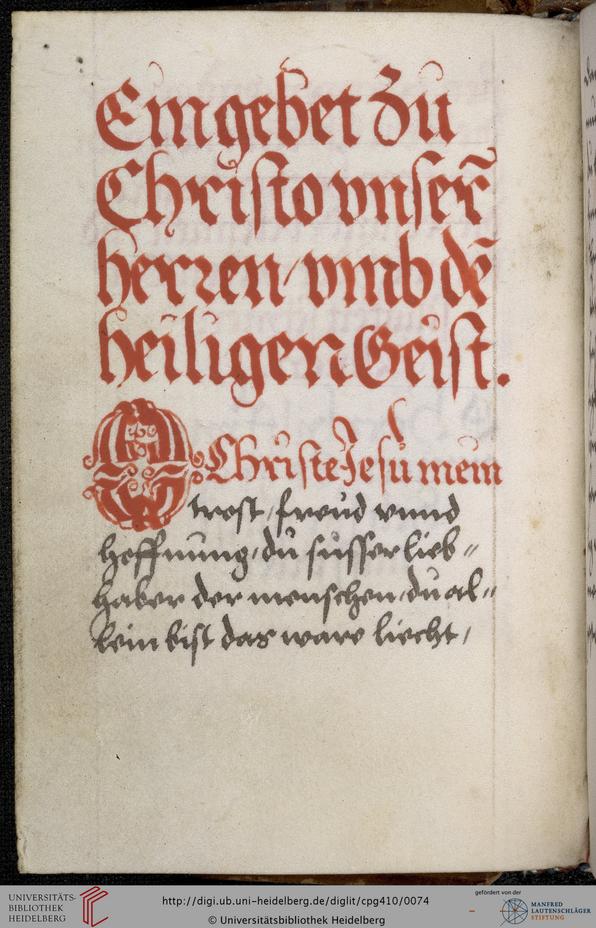 Ein gebet Zu
Christo vnser̃
herren / vmb dẽ
heiligen Geist.
O Christe Jesu mein
trost / freud vnnd
hoffnung / du süsser lieb⸗
haber der menschen / du al⸗
lein bist das ware liecht /
UNIVERSITÄTS-
BIBLIOTHEK
HEIDELBERG
http://digi.ub.uni-heidelberg.de/diglit/cpg410/0074
© Universitätsbibliothek Heidelberg
gefördert von der
MANFRED
LAUTENSCHLÄGER
STIFTUNG